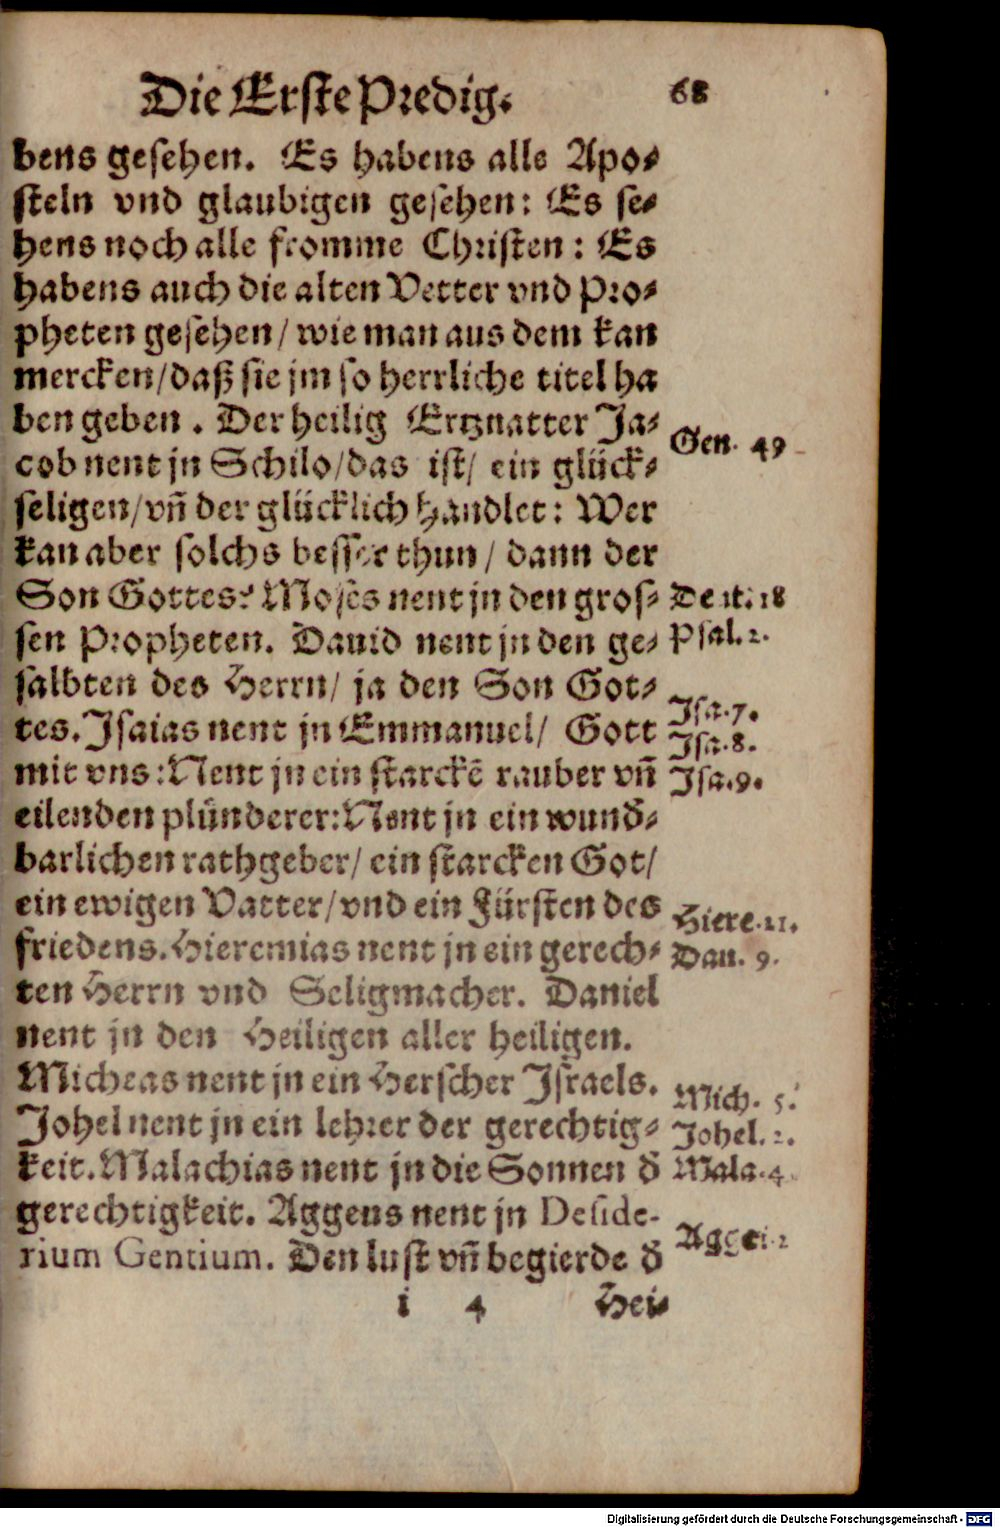 Die Erste Predig. 68
bens gesehen. Es habens alle Apo-
steln vnd glaubigen gesehen: Es se-
hens noch alle fromme Christen: Es
habens auch die alten Vetter vnd Pro-
pheten gesehen/ wie man aus dem kan
mercken/daß sie jm so herrliche titel ha
ben geben. Der heilig Ertzuatter Ja-
Gen. 49
cob nent jn Schilo/das ist/ ein glück-
seligen/vñ der glücklich handlet: Wer
kan aber solchs besser thun/ dann der
Son Gottes? Moses nent jn den gros-
Deut. 18
sen Propheten. Dauid nent jn den ge-
Psal. 2.
salbten des Herrn/ ja den Son Got-
Isa. 7.
tes. Isaias nent jn Emmanuel/ Gott
Isa. 8.
mit vns: Nent jn ein starckẽ rauber vñ
Isa. 9.
eilenden plünderer: Nent jn ein wund-
barlichen rathgeber/ ein starcken Got/
ein ewigen Vatter/vnd ein Fürsten des
Hiere. 11.
friedens. Hieremias nent jn ein gerech-
Dan. 9.
ten Herrn vnd Seligmacher. Daniel
nent jn den Heiligen aller heiligen.
Micheas nent jn ein Herscher Israels.
Mich. 5.
Johel nent jn ein lehrer der gerechtig-
Johel. 2.
keit. Malachias nent jn die Sonnen đ
Mala. 4
gerechtigkeit. Aggeus nent jn Deside-
Aggei. 2
rium Gentium. Den lust vñ begierde đ
i 4 Hei-
Digitalisierung gefördert durch die Deutsche Forschungsgemeinschaft - DFG